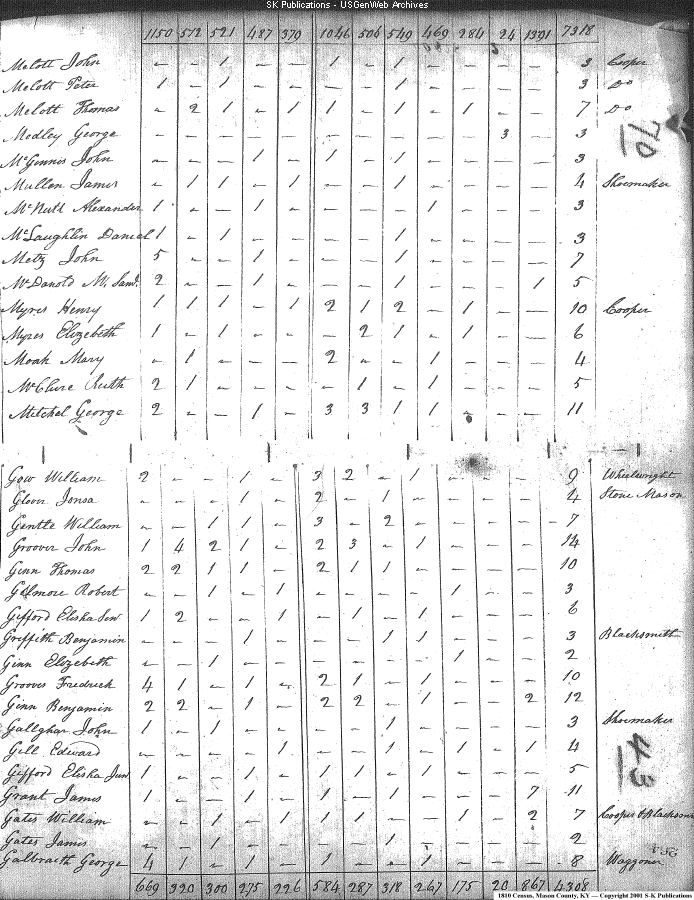 SK Publications - USGenWeb Archives
1150 572 521 487 379 1046 506 549 469 284 24 1391 7318
Melott John – – 1 – – 1 – 1 – – – – 3 Cooper
Melott Peter 1 – 1 – – – – 1 – – – – 3 Do
Melott Thomas – 2 1 – 1 1 – 1 – 1 – – 7 Do
Medley George – – – – – – – – – – 3 – 3
70
McGennis John – – – 1 – 1 – 1 – – – – 3
Mullen James – 1 1 – 1 – – 1 – – – – 4 Shoemaker
McNutt Alexander 1 – – 1 – – – – 1 – – – 3
McLaughlin Daniel 1 – 1 – – – – 1 – – – – 3
Metz John 5 – – 1 – – – 1 – – – – 7
McDanold M. Saml. 2 – – 1 – – – 1 – – – 1 5
Myres Henry 1 1 1 – 1 2 1 2 – 1 – – 10 Cooper
Myres Elizebeth 1 – 1 – – – 2 1 – 1 – – 6
Moak Mary – 1 – – – 2 – – 1 – – – 4
McClure Ruth 2 1 – – – – 1 – 1 – – – 5
Mitchel George 2 – – 1 – 3 3 1 1 – – – 11
Gow William 2 – – 1 – 3 2 – 1 – – – 9 Wheelwright
Glover Jonsa – – – 1 – 2 – 1 – – – – 4 Stone Mason
Gentle William – – 1 1 – 3 – 2 – – – – 7
Groover John 1 4 2 1 – 2 3 – 1 – – – 14
Ginn Thomas 2 2 1 1 – 2 1 1 – – – – 10
Gilmore Robert – – 1 – 1 – – – – 1 – – 3
Gifford Elisha Sen 1 2 – – 1 – 1 – 1 – – – 6
Griffith Benjamin – – – 1 – – – 1 1 – – – 3 Blacksmith
Ginn Elizebeth – – 1 – – – – – – 1 – – 2
Grooves Fredrick 4 1 – 1 – 2 1 – 1 – – – 10
Ginn Benjamin 2 2 – 1 – 2 2 – 1 – – 2 12
Gallghar John 1 – 1 – – – – 1 – – – – 3 Shoemaker
Gill Edward – – – – 1 – – 1 – 1 – 1 4
43
Gifford Elisha Jun 1 – – 1 – 1 1 – 1 – – – 5
Grant James 1 – – 1 – 1 – 1 – – – 7 11
Gates William – – 1 – 1 1 1 – – 1 – 2 7 Cooper & Blacksm
Gates James – – 1 – – – – 1 – – – – 2
Galbraith George 4 1 – 1 – 1 – – 1 – – – 8 Waggoner
669 320 300 275 226 584 287 318 267 175 20 867 4308
1810 Census, Mason County, KY — Copyright 2001 S-K Publications